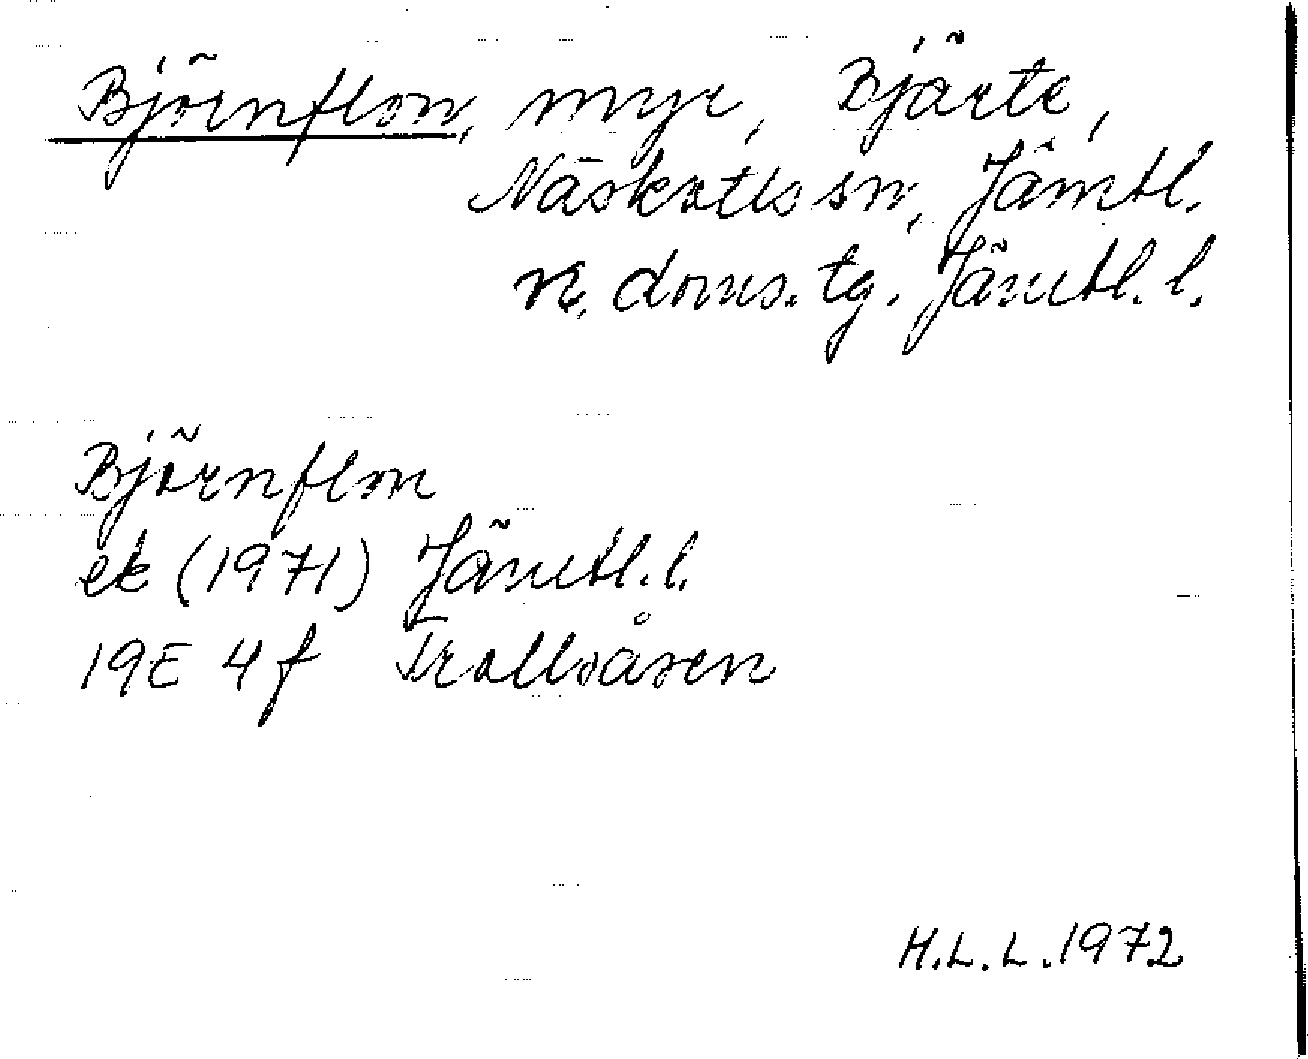 Björnflon, myr, Bjärte,
Näskotts sn, Jämtl.
n. doms. tg. Jämtl. l.
Björnflon
ek (1971) Jämtl. l.
19E 4f Trollsåsen
H.L.L. 1972